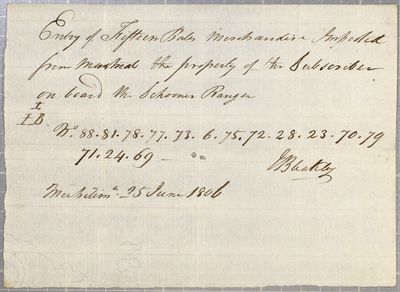 Entry of Fifteen Bales Merchandise Imported
from Montreal the property of the Subscriber
on board the Schooner Ranger
I
I B. No 88. 81. 78. 77. 73. 6. 75. 72. 28. 23. 70. 79
71. 24. 69
Blakely
25 June 1806